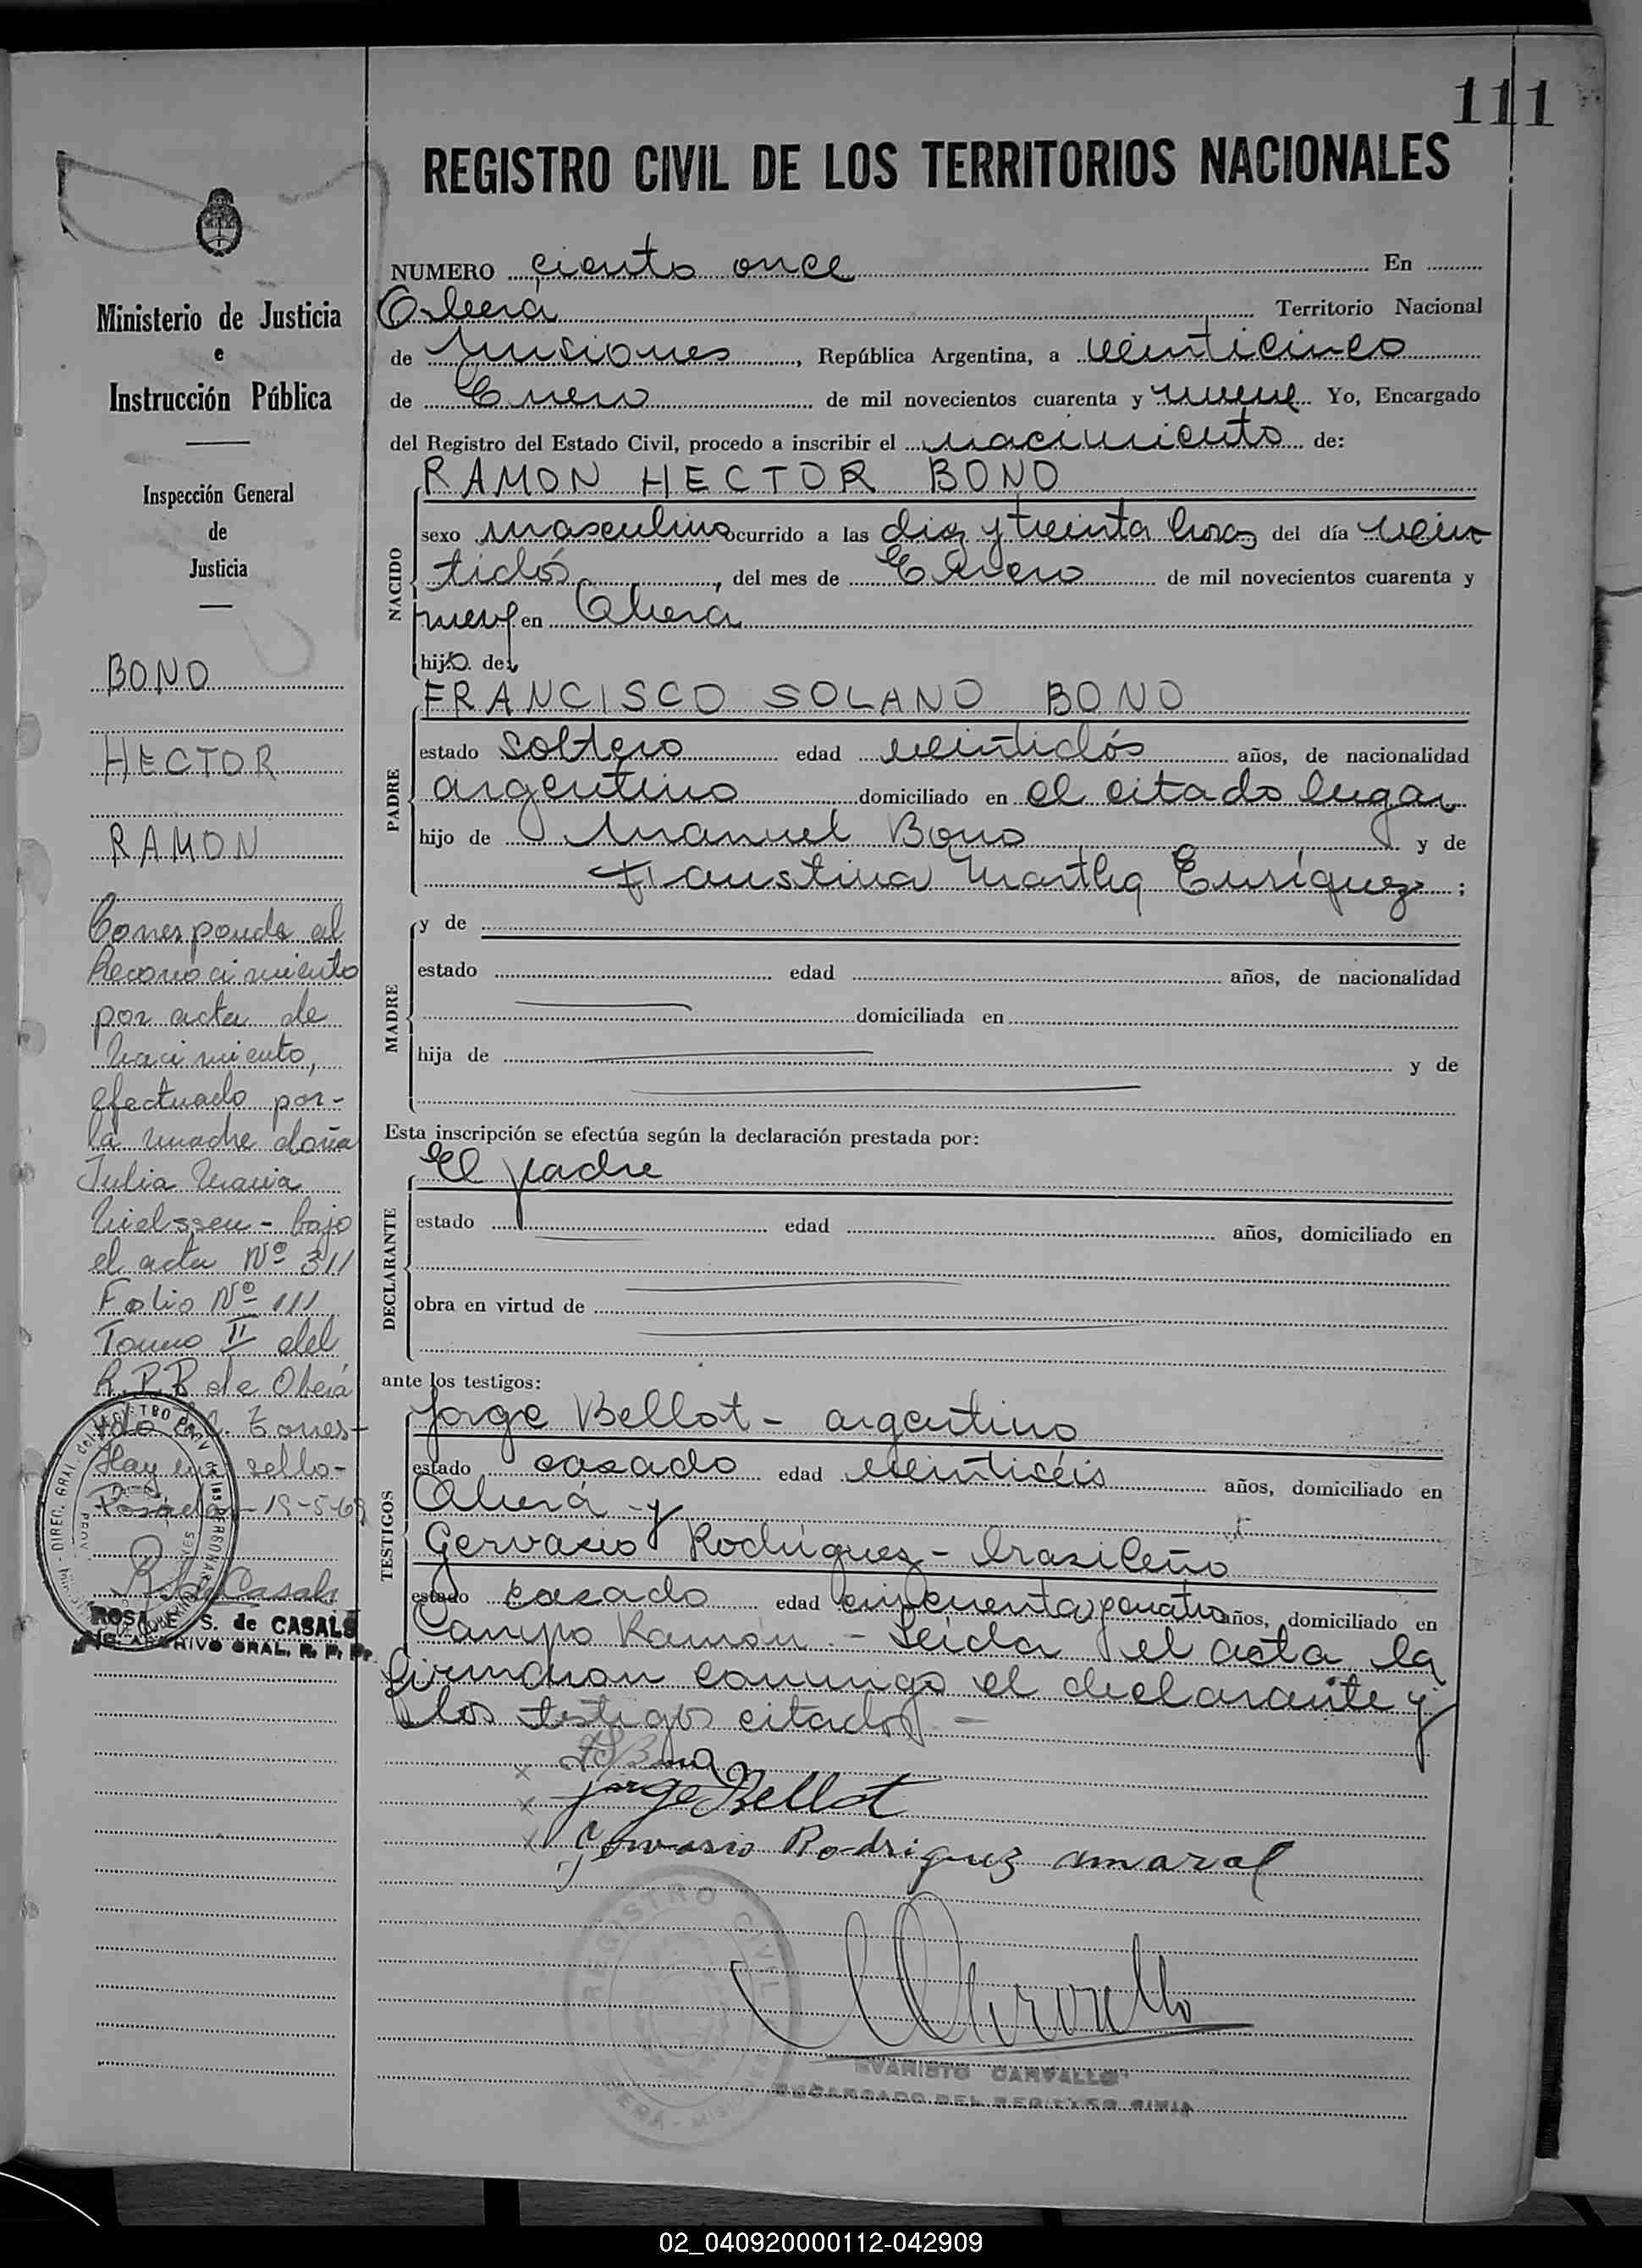 111
REGISTRO CIVIL DE LOS TERRITORIOS NACIONALES
Ministerio de Justicia
e
Instrucción Pública
Inspección General
de
Justicia
BONO
HECTOR
RAMON
Corresponde al
Reconocimiento
por acta de
Nacimiento,
efectuado por-
la madre doña
Julia Maria
Nielssen - bajo
el acta Nº 311
Folio Nº 111
Tomo II del
R.P.P. de Oberá
Torres-
Hay un sello-
Posadas - 19-5-69
ROSA E. S. de CASALS
ARCHIVO GRAL. R. P. P.
NUMERO ciento once En
Oberá Territorio Nacional
de Misiones, República Argentina, a veinticinco
de Enero de mil novecientos cuarenta y nueve Yo, Encargado
del Registro del Estado Civil, procedo a inscribir el nacimiento de:
RAMON HECTOR BONO
NACIDO
sexo masculino ocurrido a las diez y treinta horas del día vein
tidós, del mes de Enero de mil novecientos cuarenta y
nueve en Oberá
hijo de:
FRANCISCO SOLANO BONO
PADRE
estado soltero edad veintidós años, de nacionalidad
argentino domiciliado en el citado lugar
hijo de Manuel Bono y de
Faustina Martha Enríquez;
MADRE
y de
estado edad años, de nacionalidad
domiciliada en
hija de y de
Esta inscripción se efectúa según la declaración prestada por:
El padre
DECLARANTE
estado edad años, domiciliado en
obra en virtud de
ante los testigos:
TESTIGOS
Jorge Bellot - argentino
estado casado edad veintiséis años, domiciliado en
Oberá - y
Gervasio Rodríguez - brasileño
estado casado edad cincuenta y cuatro años, domiciliado en
Campo Ramón. - Leída el acta la
firmaron conmigo el declarante y
los testigos citados -
F S Bono
Jorge Bellot
Gervasio Rodriguez amaral
EVARISTO CARVALLO
ENCARGADO DEL REGISTRO CIVIL
02_040920000112-042909